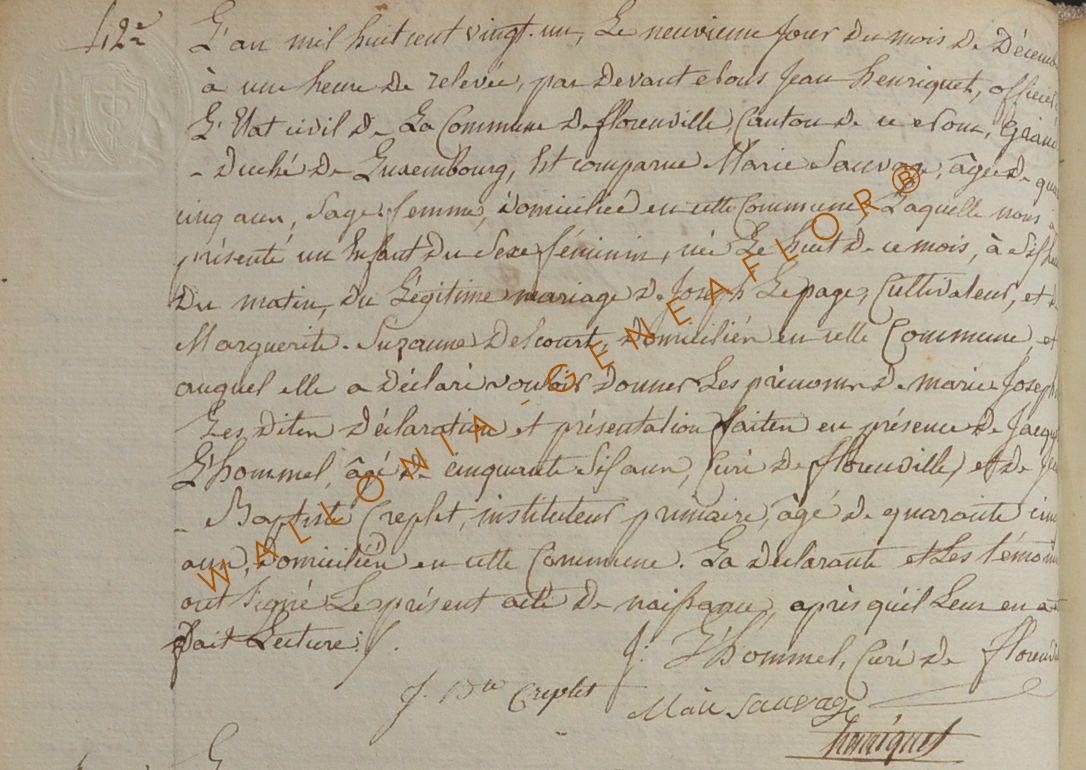 42e
L'an mil huit cent vingt-un, Le neuvieme Jour du mois de Décemb
à une heure de relevée, par devant nous Jean henriquet, officier
L'Etat civil de La Commune de florenville, Canton de ce nom, Grand
- duché de Luxembourg, Est comparue Marie Sauvage, âgée de qua
cinq ans, Sage femme, domiciliée en cette Commune, Laquelle nous à
présenté un Enfant du Sexe féminin, né Le huit de ce mois, à six heu
du matin, du Légitime mariage de Joseph Lepage, Cultivateur, et de
Marguerite-Suzanne Descourt, domiciliés en cette Commune et
auquel elle a déclaré vouloir donner Les prénoms de marie Joseph
Les dites déclaration et présentation faites en présence de Jacqu
L'hommel, âgé de cinquante six ans, Curé de florenville, et de Jean
- Baptiste Creplet, instituteur primaire, âgé de quarante cinq
ans, domiciliés en cette Commune. La déclarante et Les témoins
ont Signé Le présent acte de naissance, après qu'il Leur en a été
fait Lecture ./.
J. L'hommel, Curé de florenvi
J. Bte Creplet
Marie Sauvage
henriquet
WALLONIA - GENEAFLOR®